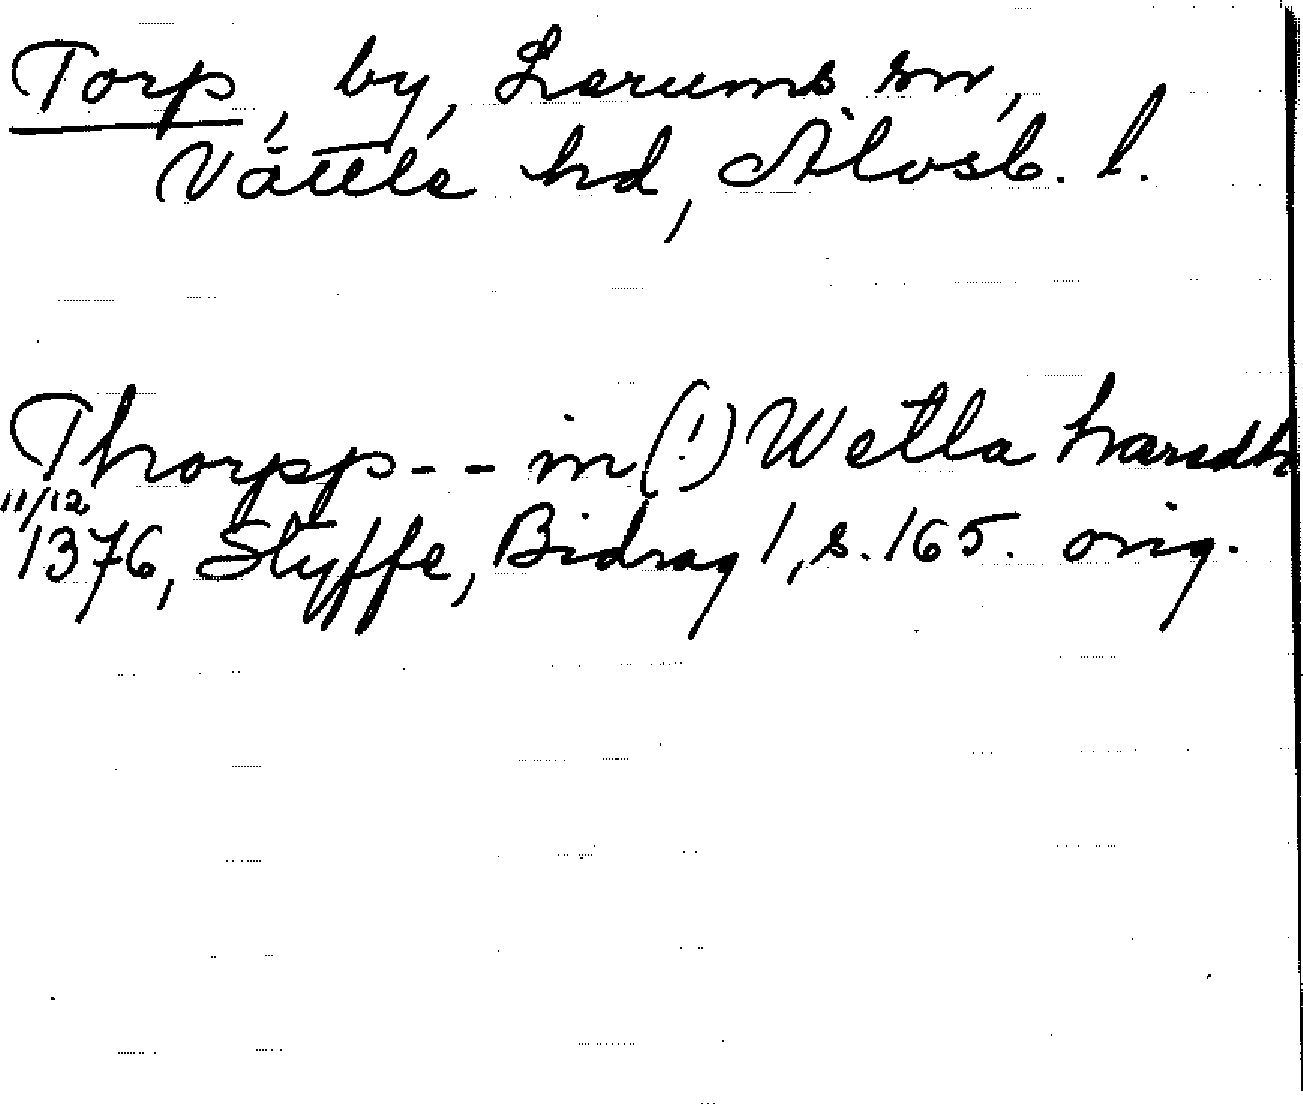 Torp, by, Lerums sn,
Vättle hd, Älvsb. l.
Thorpp - - in (!) Wetla hæredh
11/12
1376, Styffe, Bidrag 1, s. 165. orig.